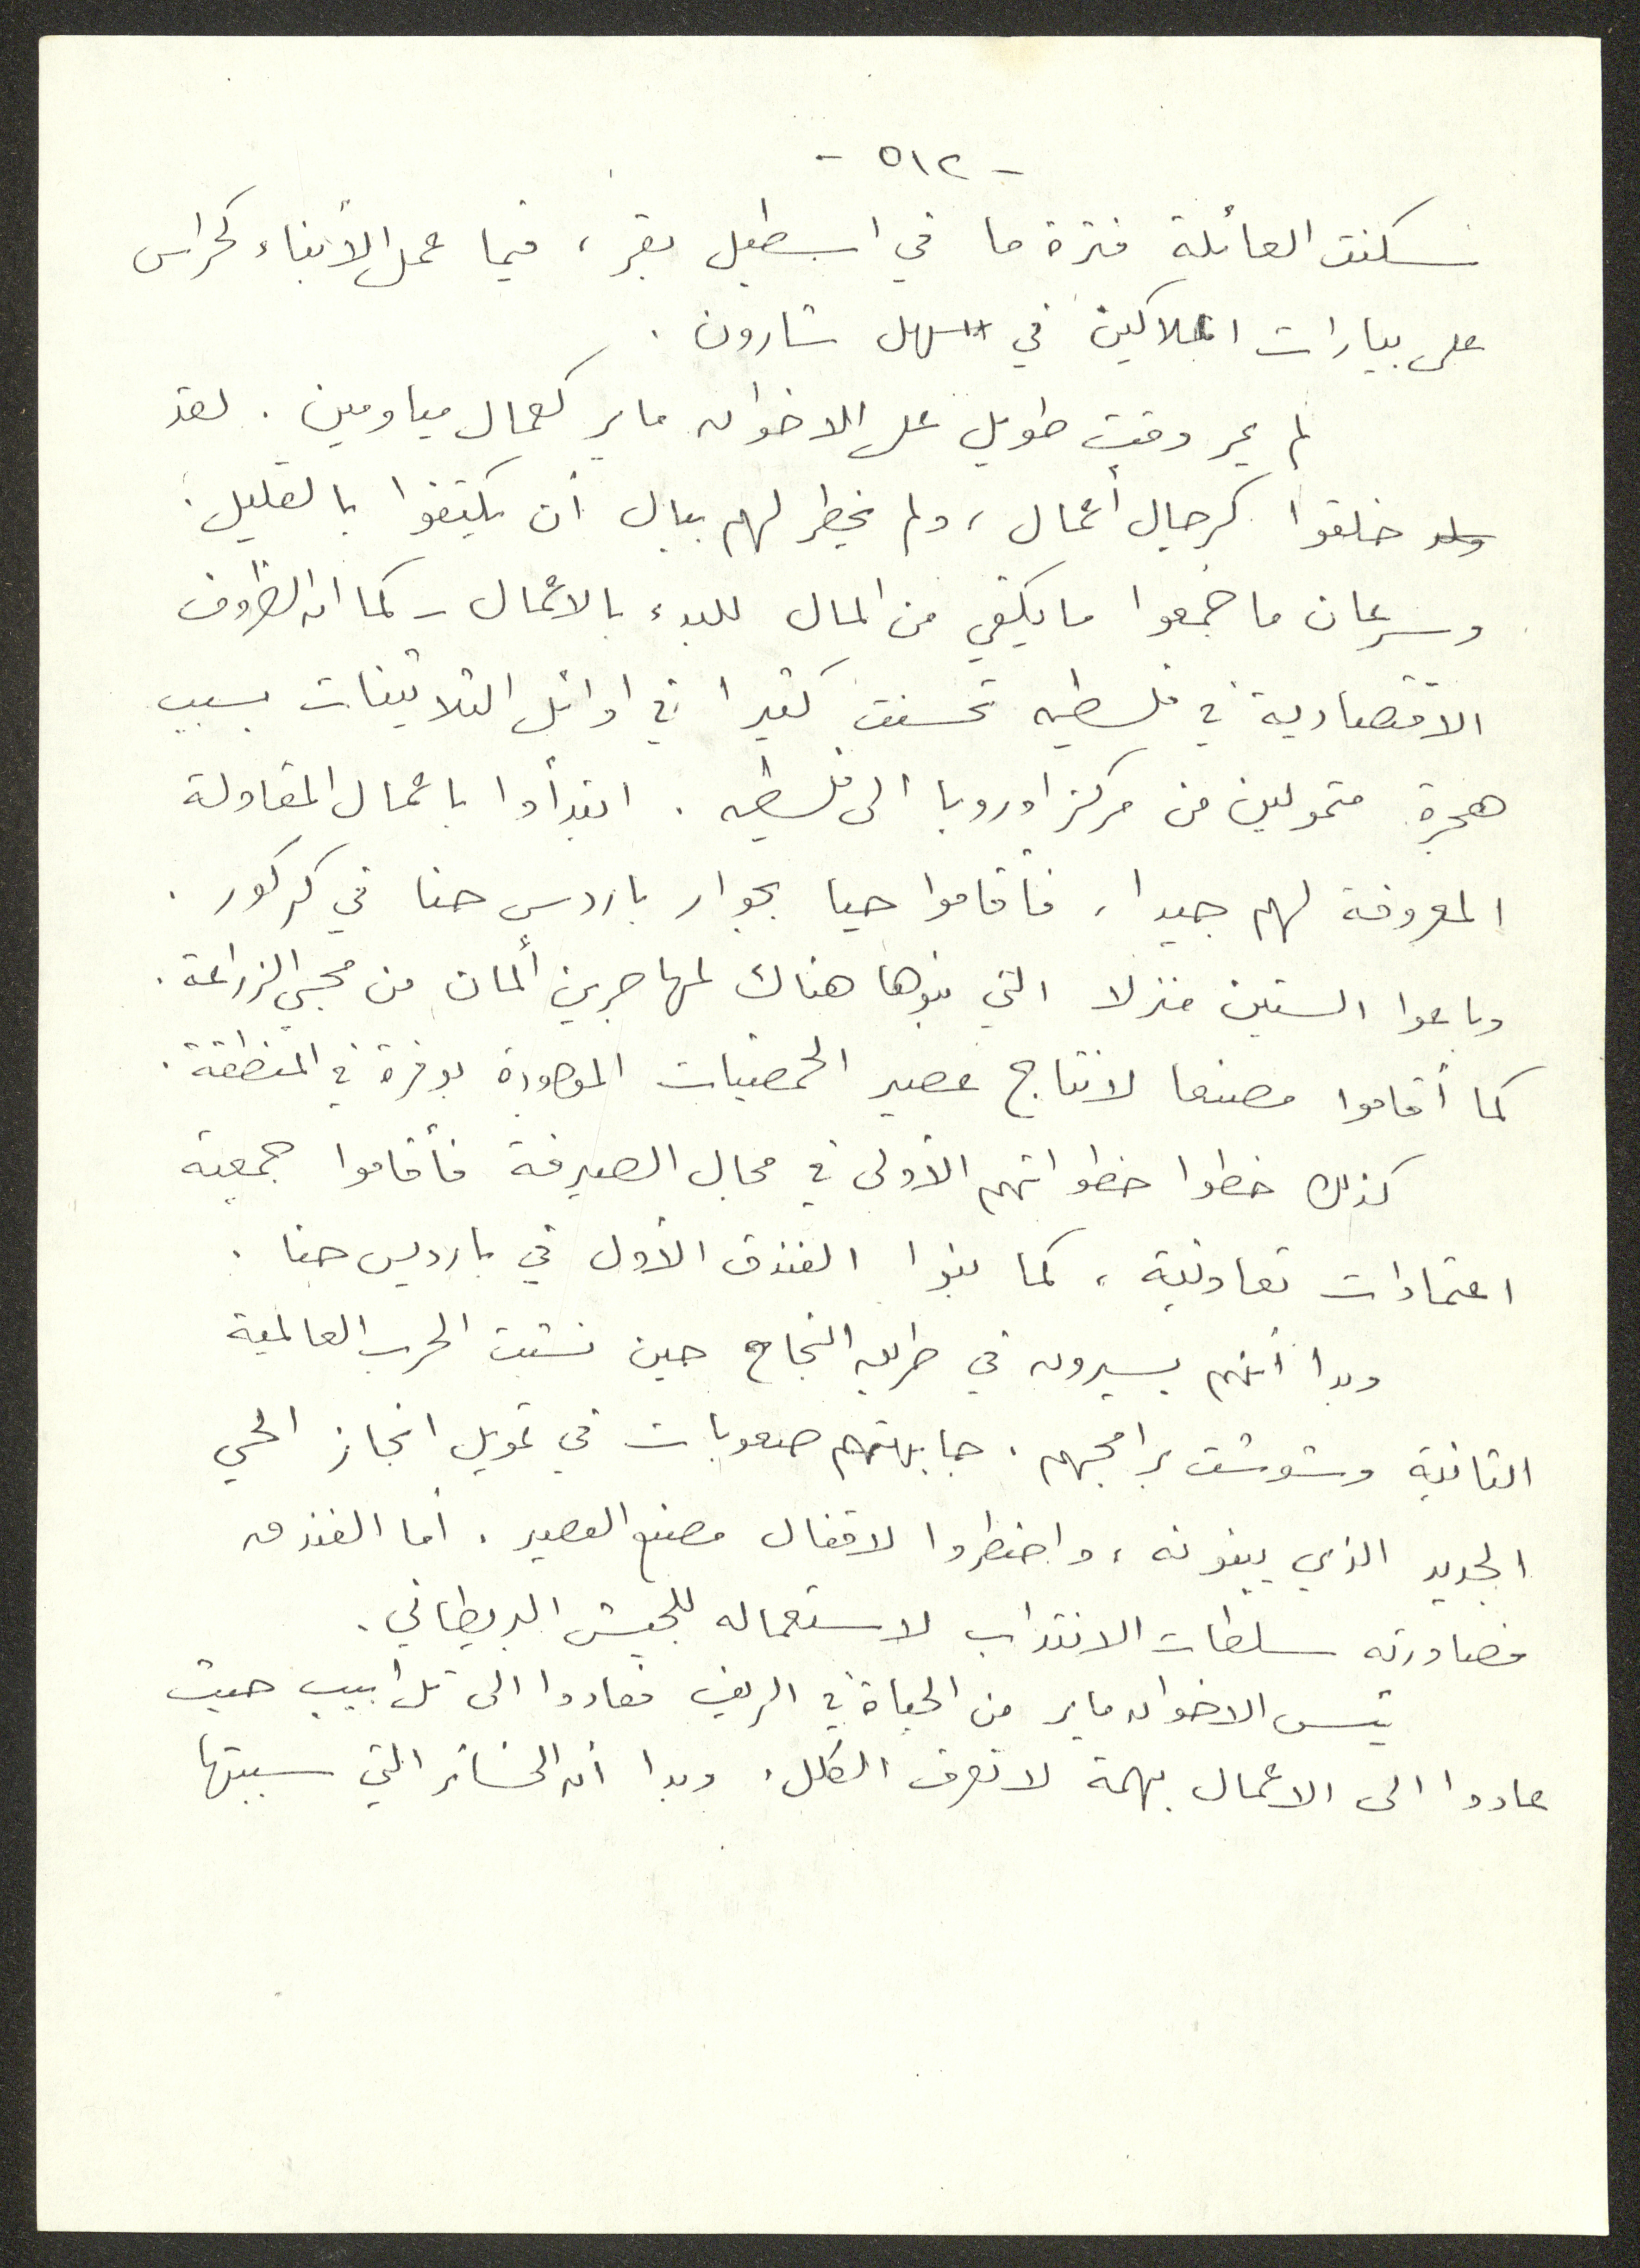 - ٥١٢ -
سكنت العائلة فترة ما في اسطبل بقر، فيما عمل الأبناء كحراس
على بيارات الملاكين في سهل شارون.
لم يمر وقت طويل على الاخوان ماير كعمال مياومين. لقد
خلقوا كرجال أعمال، ولم يخطر لهم ببال أن يكتفوا بالقليل.
وسرعان ما جمعوا ما يكفي من المال للبدء بالاعمال - كما ان الظروف
الاقتصادية في فلسطين تحسنت كثيرا في اوائل الثلاثينات بسبب
هجرة متمولين من مركز اوروبا الى فلسطين. ابتدأوا باعمال المقاولة
المعروفة لهم جيدا، فأقاموا حيا بجوار باردس حنا في كركور.
وباعوا الستين منزلا التي بنوها هناك لمهاجرين ألمان من محبي الزراعة.
كما أقاموا مصنعا لانتاج عصير الحمضيات الموجودة بوفرة في المنطقة.
كذلك خطوا خطواتهم الأولى في مجال الصيرفة فأقاموا جمعية
اعتمادات تعاونية، كما بنوا الفندق الأول في بارديس حنا.
وبدا أنهم يسيرون في طريق النجاح حين نشبت الحرب العالمية
الثانية وشوشت برامجهم. جابهتهم صعوبات في تمويل انجاز الحي
الجديد الذي يبنونه، واضطروا لاقفال مصنع العصير. أما الفندق
فصادرته سلطات الانتداب لاستعماله للجيش البريطاني.
يئس الاخوان ماير من الحياة في الريف فعادوا الى تل أبيب حيث
عادوا الى الاعمال بهمة لا تعرف الكلل. وبدا أن الخسائر التي سببتها